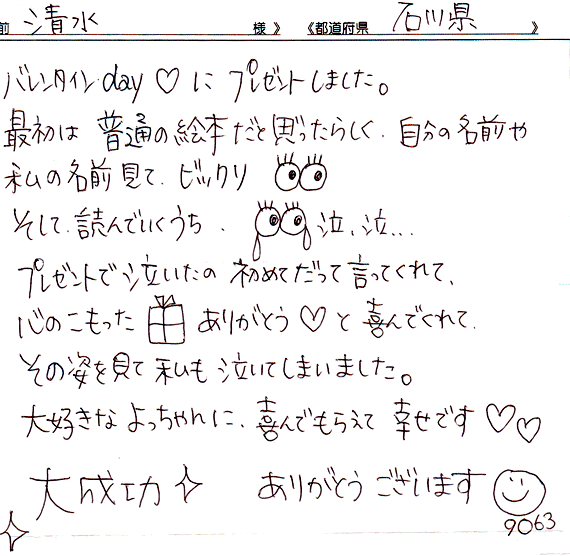 前 清水 様 》 《都道府県 石川県 》
バレンタインday♡にプレゼントしました。
最初は 普通の絵本だと思ったらしく、自分の名前や
私の名前見て、ビックリ
そして、読んでいくうち、 泣、泣...
プレゼントで泣いたの 初めてだって言ってくれて、
心のこもった ありがとう♡と喜んでくれて、
その姿を見て私も泣いてしまいました。
大好きなよっちゃんに、喜んでもらえて 幸せです♡♡
大成功 ありがとうございます
9063